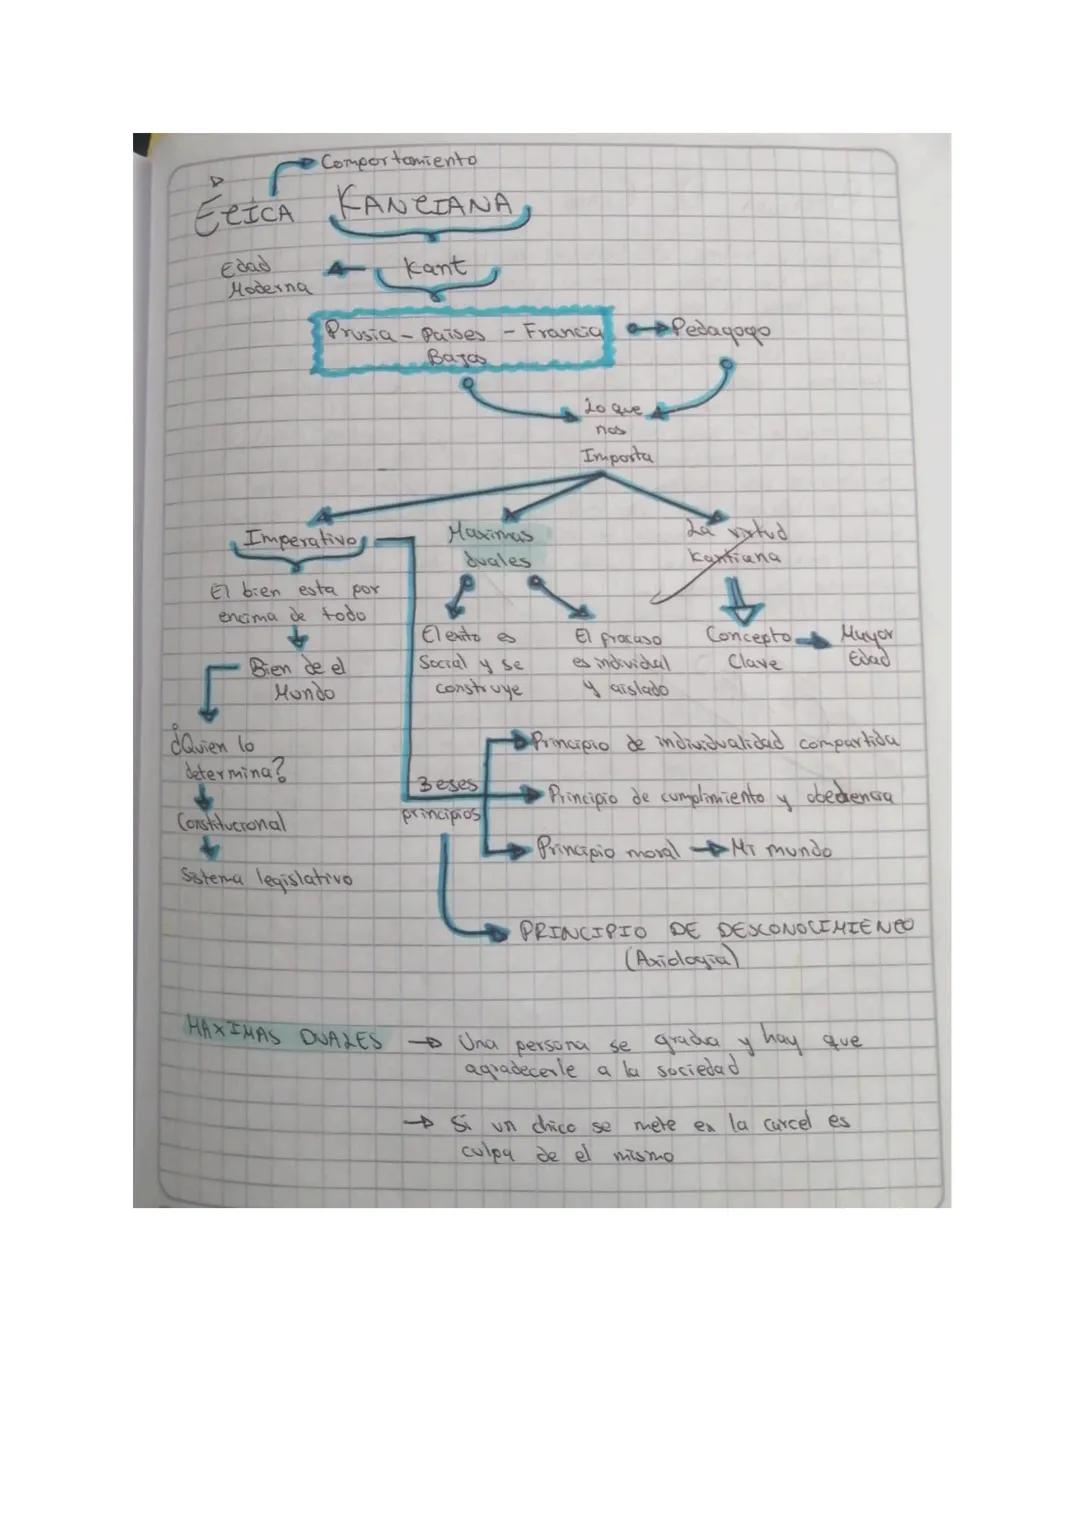 Comportamiento
Ética KANTIANA
Edad
Moderna
Kant
Prusia - Países - Francia
Bajos
Pedagogo
Lo que
nos
Importa
Imperativo
Maximas
duales
La virtud
kantiana
El bien esta por
encima de todo
El exito es
Social y se
construye
El fracaso
es individual
y aislado
Concepto
Clave
Mayor
Edad
Bien de el
Mundo
¿Quien lo
determina?
Constitucional
Sistema legislativo
3 eses
principios
Principio de individualidad compartida
Principio de cumplimiento y obediencia
Principio moral → Mi mundo
PRINCIPIO DE DESCONOCIMIENTO
(Axiologia)
MAXIMAS DUALES → Una persona se gradua y hay que
agradecerle a la sociedad
→ Si un chico se mete en la carcel es
culpa de el mismo